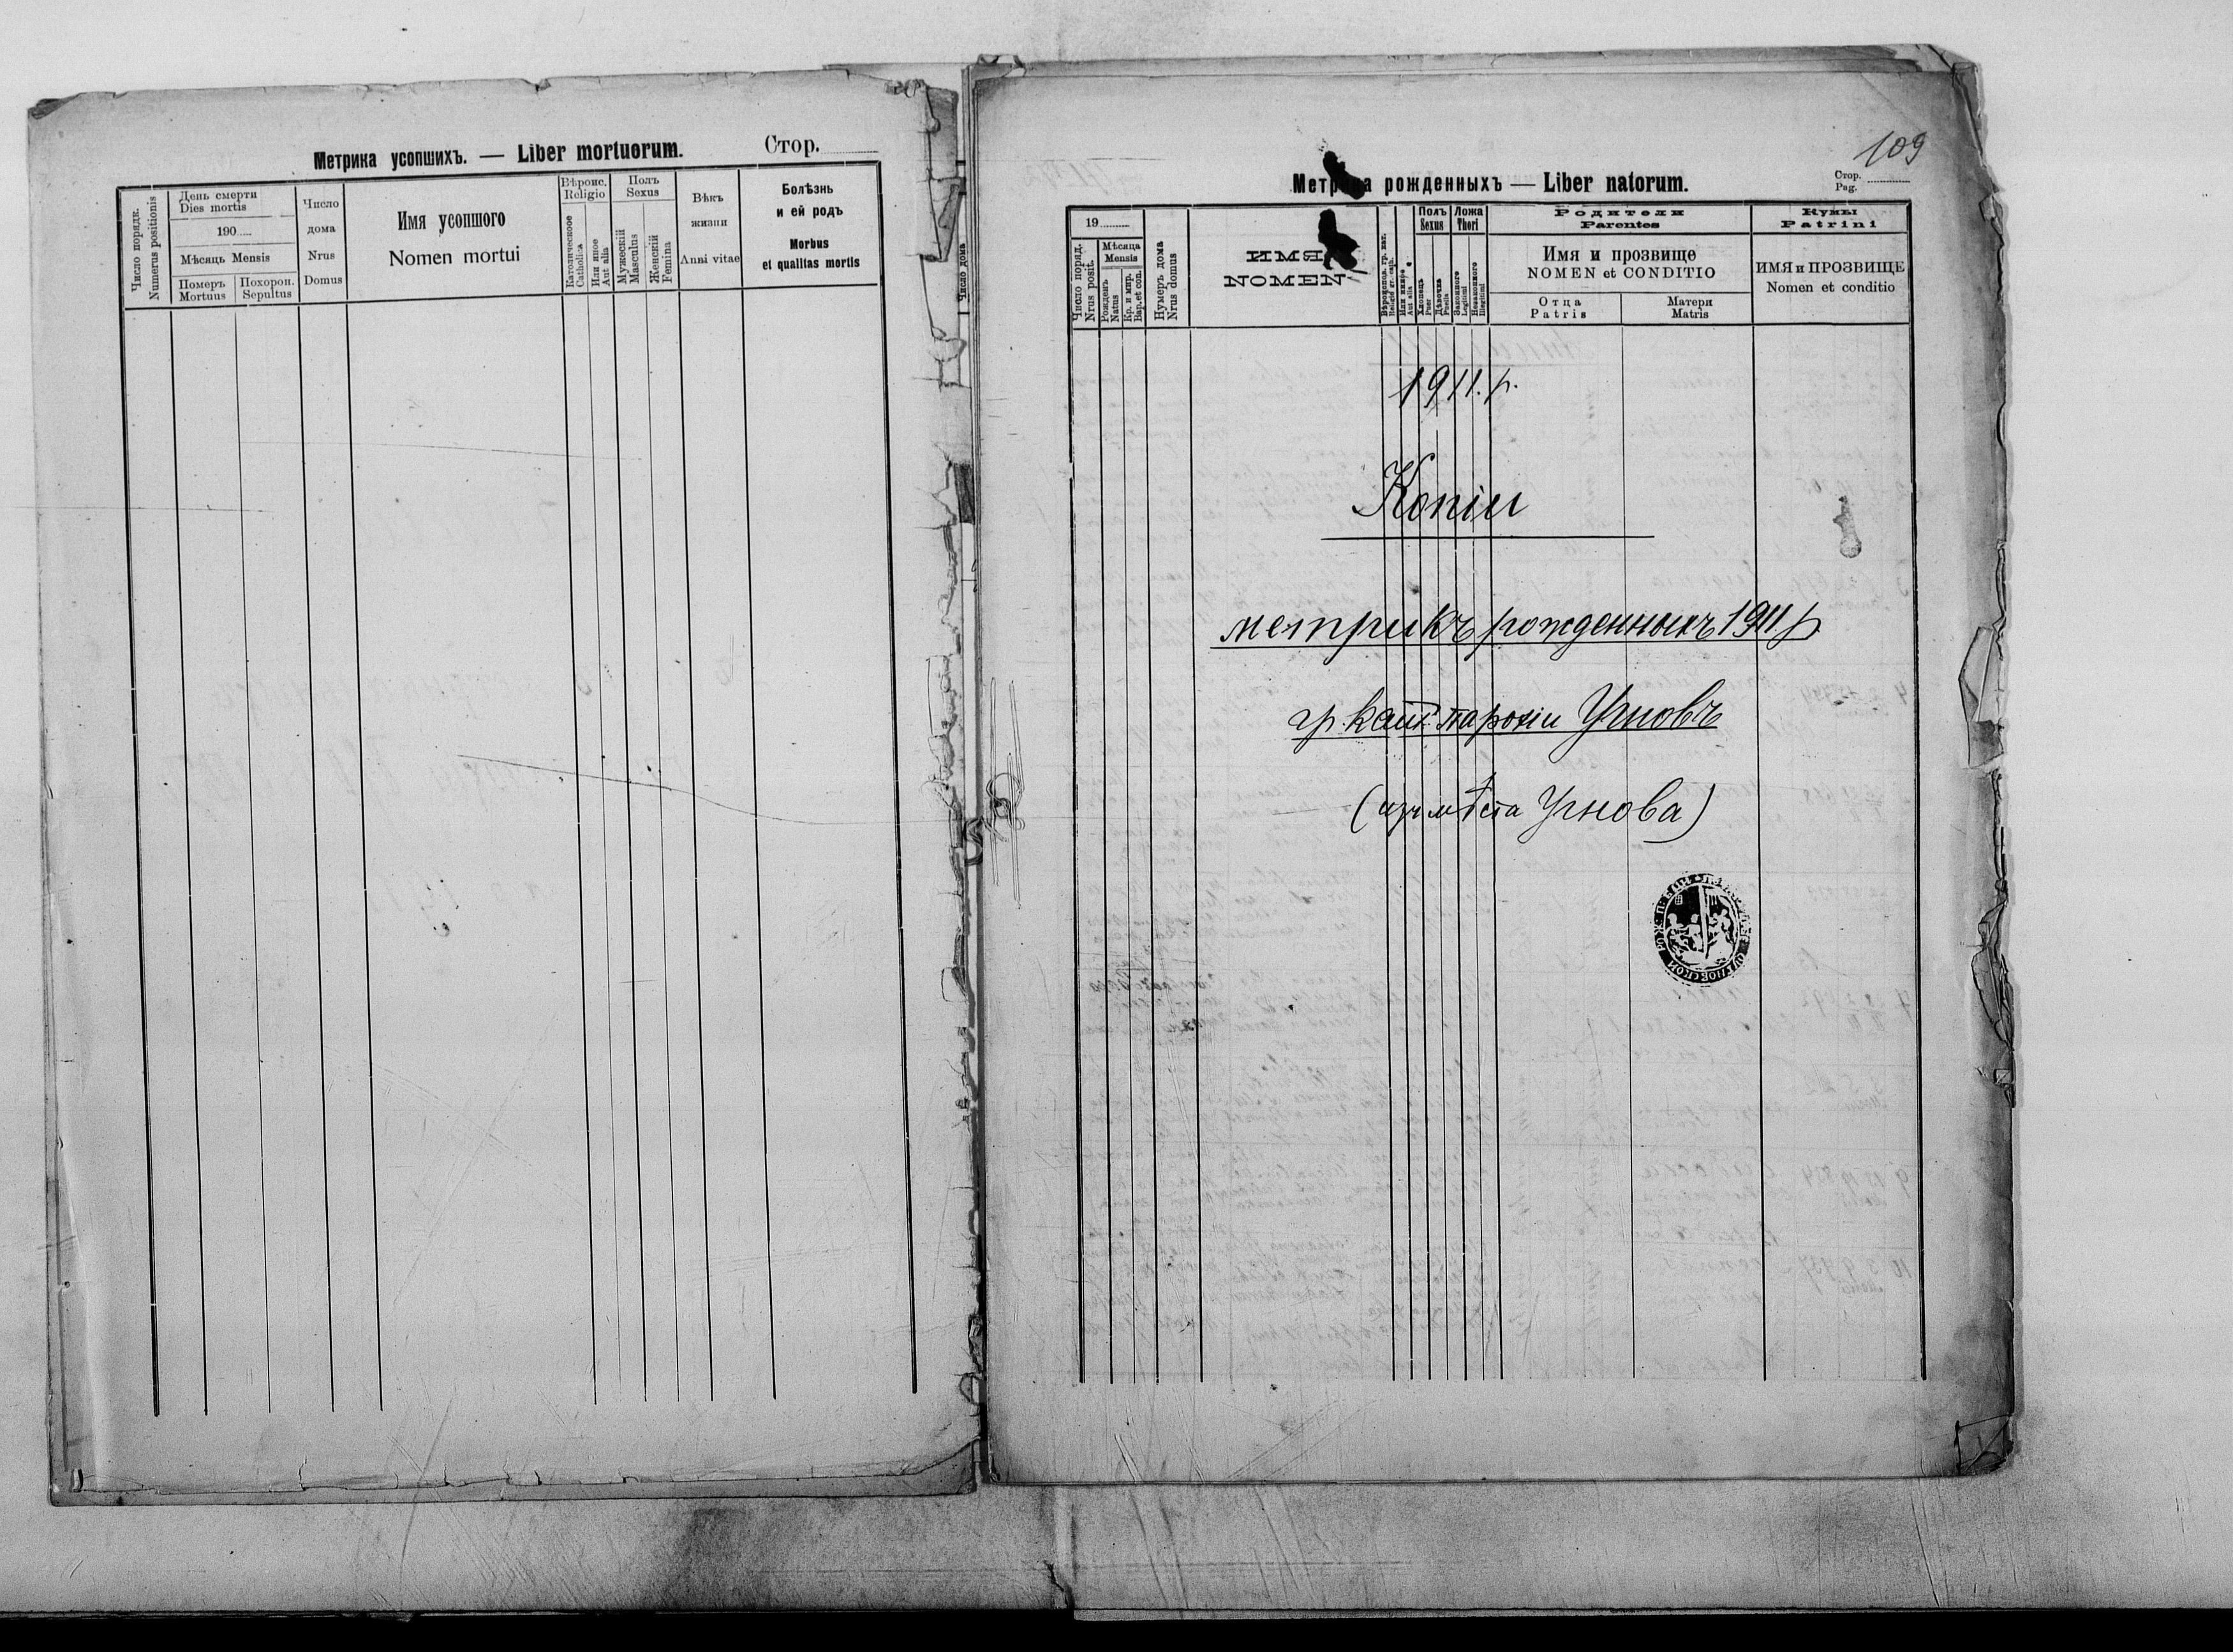 Метрика усопшихъ. — Liber mortuorum. Стор.
Число порядк.
Numerus positionis
День смерти
Dies mortis
190
Мѣсяць Mensis
Померъ
Mortuus
Похорон.
Sepultus
Число
дома
Nrus
Domus
Имя усопшого
Nomen mortui
Вѣроис.
Religio
Католическое
Catholica
Или иное
Aut alia
Полъ
Sexus
Мужескій
Masculus
Женскій
Femina
Вѣкъ
жизни
Anni vitae
Болѣзнь
и ей родъ
Morbus
et qualitas mortis
Число дома
109
Метрика рожденныхъ — Liber natorum.
Стор.
Pag.
19
Число поряд.
Nrus posit.
Мѣсяца
Mensis
Рожденъ
Natus
Кр. и мир.
Bap. et con.
Нумеръ дома
Nrus domus
ИМЯ
NOMEN
Вѣроиспов. гр. кат.
Religio gr. cath.
Или инное
Aut alia
Полъ
Sexus
Хлопець
Puer
Дѣвочка
Puella
Ложа
Thori
Законного
Legitimi
Незаконного
Illegitimi
Родители
Parentes
Имя и прозвище
NOMEN et CONDITIO
Отца
Patris
Матери
Matris
Кумы
Patrini
ИМЯ и ПРОЗВИЩЕ
Nomen et conditio
1911. р.
Копіи
метрикъ рожденныхъ 1911 р
гр. кат. парохіи Угновъ
(изъ мѣста Угнова)